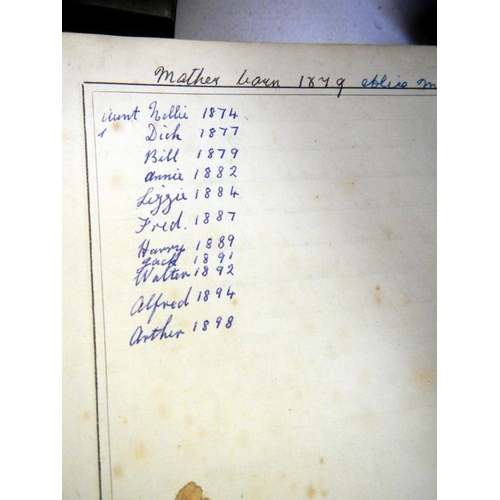 Mother born 1879
Aunt Nellie 1874
Dick 1877
Bill 1879
Annie 1882
Lizzie 1884
Fred. 1887
Harry 1889
Jack 1891
Walter 1892
Alfred 1894
Arther 1898